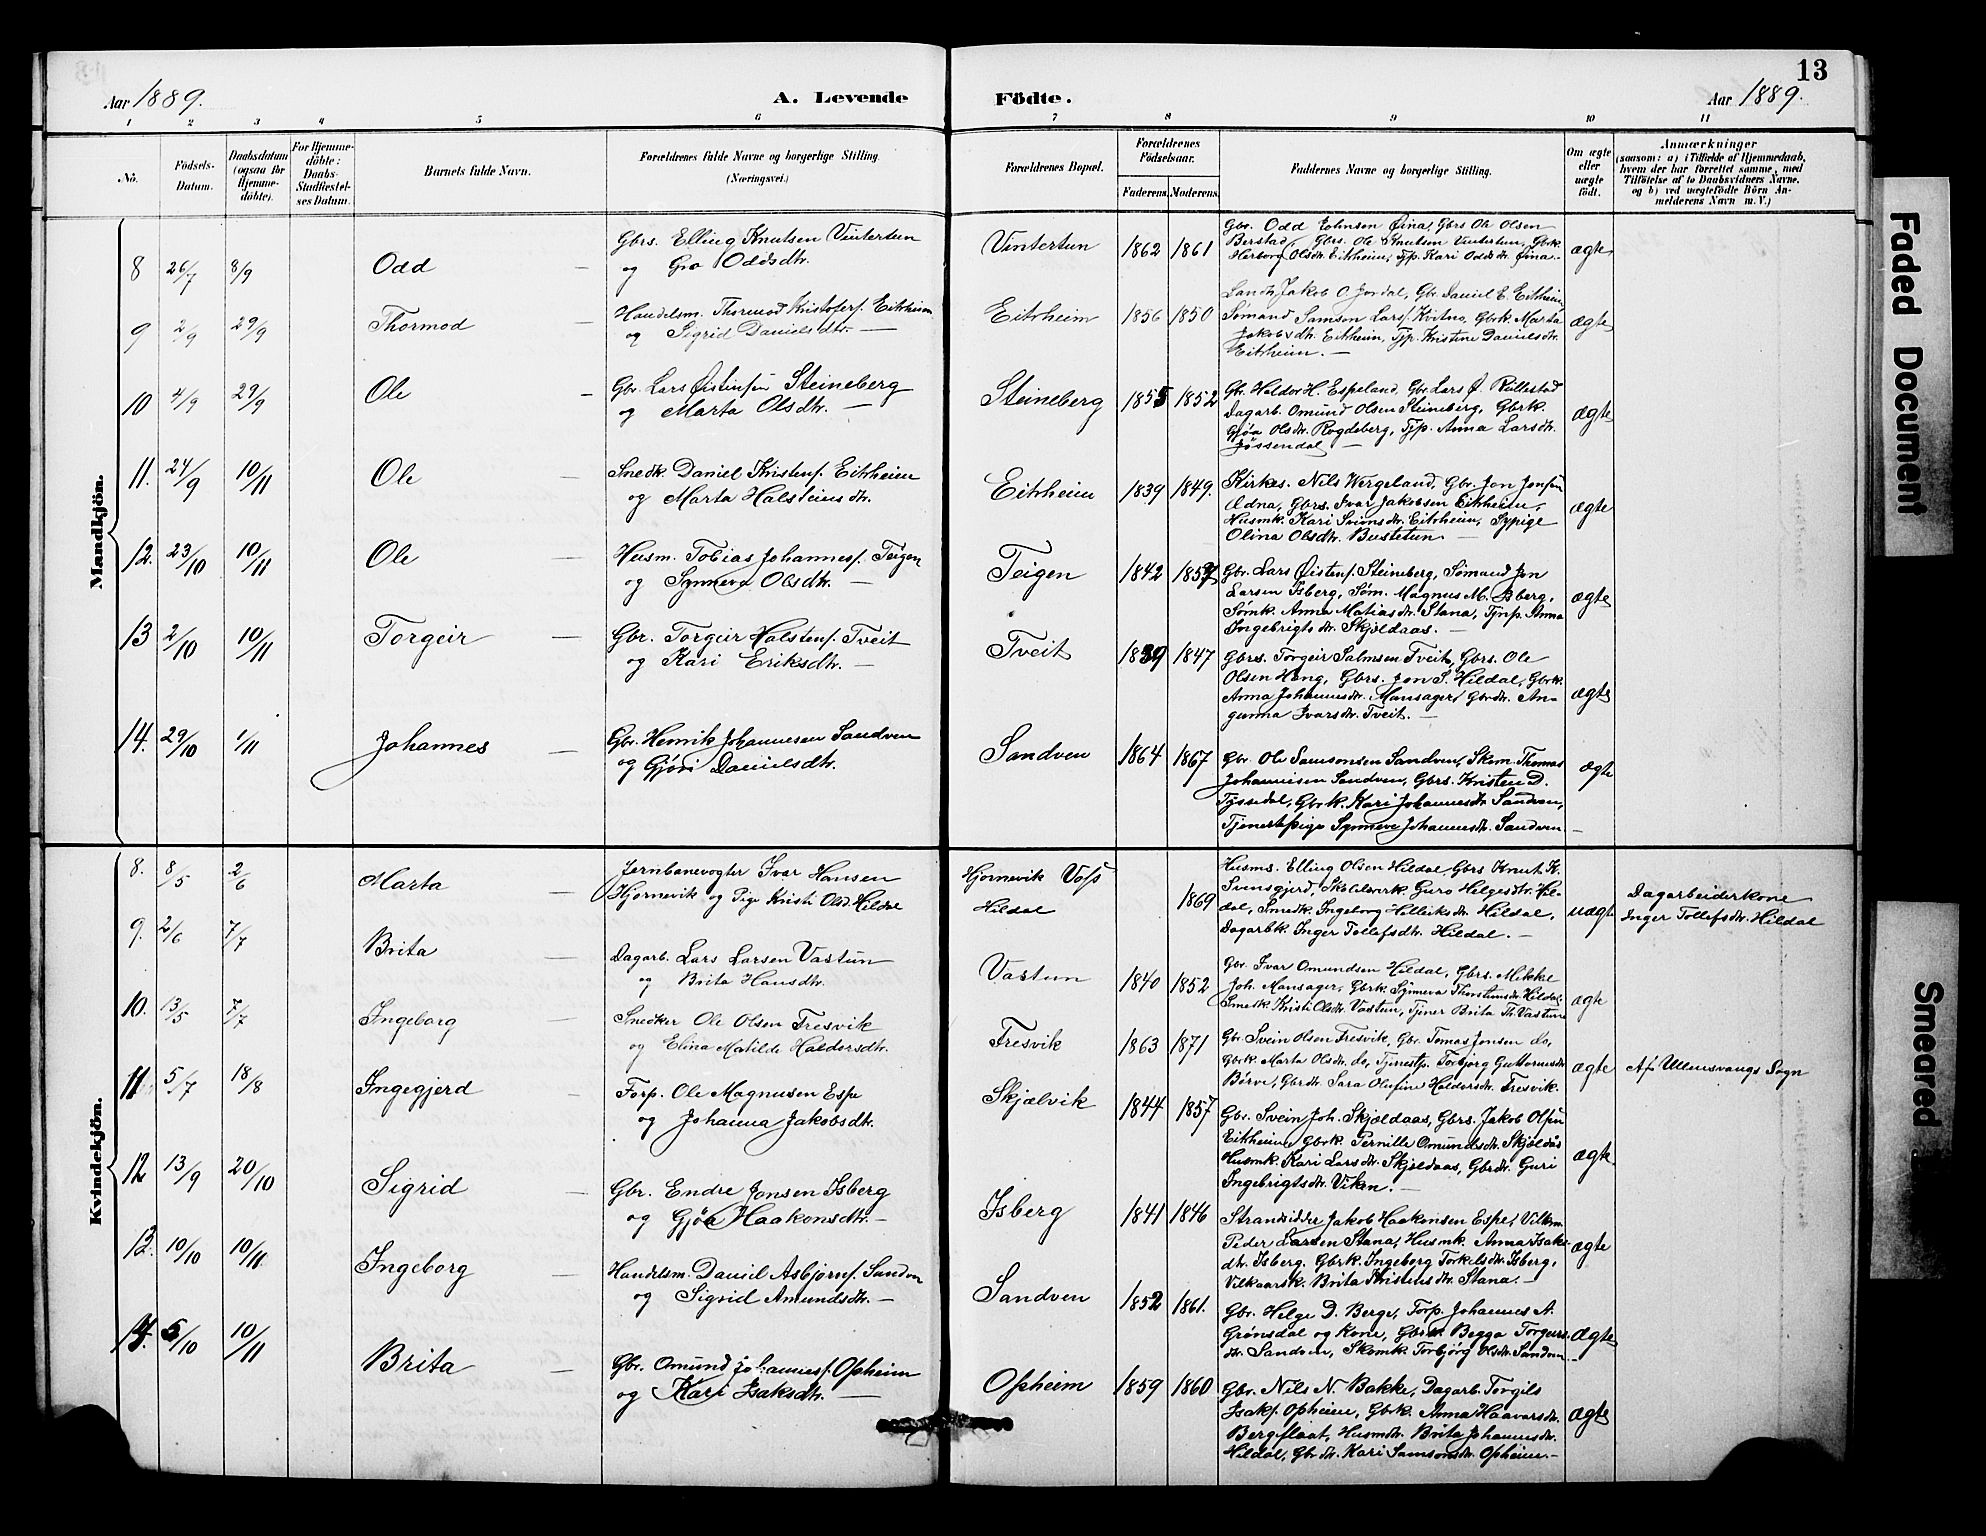 13
Aar 1889.
A. Levende Födte.
Aar 1889.
1 2 3 4 5 6 7 8 9 10 11
No.
Födsels-Datum.
Daabsdatum (ogsaa for Hjemme-döbte).
For Hjemme-döbte: Daabs-Stadfæstel-ses Datum.
Barnets fulde Navn.
Forældrenes fulde Navne og borgerlige Stilling. (Næringsvei.)
Forældrenes Bopæl.
Forældrenes Födselsaar.
Faderens. Moderens.
Faddernes Navne og borgerlige Stilling.
Om ægte eller uægte födt.
Anmærkninger
(saasom: a) i Tilfælde af Hjemmedaab, hvem der har forrettet samme, med Tilföielse af to Daabsvidners Navne, og b) ved uægtefödte Börn An-melderens Navn m. V.)
Mandkjön.
8 26/7 8/9 Odd —
Gbrs. Elling Knutsen Vintertun
og Gro Oddsdtr.
Vintertun 1862 1861
Gbr. Odd Johnsen Øina, Gbrs Ole Olsen
Berstad, Gbrs. Ole Knutsen Vintertun, Gbrk.
Herborg Olsdtr. Eitrheim, Tjp. Kari Oddsdtr. Øina.
ægte
9 2/9 29/9 Thormod —
Handelsm. Thormod Kristofers. Eitrheim
og Sigrid Danielsdtr. —
Eitrheim 1856 1850
Landh. Jakob O. Jordal, Gbr. Daniel E. Eitrheim
Sømand Samson Lars. Kvitno, Gbrk. Marta
Jakobsdtr. Eitrheim, Tjp. Kristine Danielsdtr.
Eitrheim. —
ægte
10 4/9 29/9 Ole —
Gbr. Lars Øistensen Steineberg
og Marta Olsdtr. —
Steineberg 1855 1852
Gbr. Haldor H. Espeland, Gbr. Lars Ø. Rullestad
Dagarb. Omund Olsen Steineberg, Gbrk.
Gjøa Olsdtr. Rogdeberg, Tjp. Anna Larsdtr.
Jøssendal —
ægte
11. 24/9 10/11 Ole —
Snedk. Daniel Kristens. Eitrheim
og Marta Halsteinsdtr.
Eitrheim 1839 1849.
Kirkes. Nils Wergeland, Gbr. Jon Jonsen
Ædna, Gbrs. Ivar Jakobsen Eitrheim,
Husmk. Kari Sveinsdtr. Eitrheim, Sypige
Olina Olsdtr. Bustetun —
ægte
12. 23/10 10/11 Ole —
Husm. Tobias Johannes. Teigen
og Synneva Olsdtr. —
Teigen 1842 1857
Gbr. Lars Øistens. Steineberg, Sømand Jon
Larsen Isberg, Søm. Magnus M. Isberg,
Sømk. Anna Matiasdtr. Stana, Tjnp. Anna
Ingebrigtsdtr. Skjeldaas. —
ægte
13 2/10 10/11 Torgeir —
Gbr. Torgeir Halstens. Tveit
og Kari Eriksdtr. —
Tveit 1839 1847
Gbrs. Torgeir Salmsen Tveit, Gbrs. Ole
Olsen Häng, Gbrs. Jon S. Hildal, Gbrk.
Anna Johannesdtr. Mansager, Gbrdtr. An-
gunna Ivarsdtr. Tveit. —
ægte
14. 29/10 1/11 Johannes —
Gbr. Henrik Johannesen Sandven
og Gjøri Danielsdtr.
Sandven 1864 1867
Gbr. Ole Samsonsen Sandven, Skom. Thomas
Johannesen Sandven, Gbrs. Kristen D.
Tyssedal, Gbrk. Kari Johannesdtr. Sandven,
Tjenestepige Synneva Johannesdtr. Sandven —
ægte
Kvindekjön.
8. 8/5 2/6 Marta —
Jernbanevogter Ivar Hansen
Hjørnevik og Pige Kristi Olsd. Hildal
Hjørnevik Voss
Hildal
1869
Husms. Elling Olsen Hildal, Gbrs Knut K.
Svensgjerd, Skolelærerk. Guro Helgesdtr. Hil-
dal, Smedk. Ingeborg Helleiksdtr. Hildal,
Dagarbk. Inger Tollefsdtr. Hildal. —
uægte
Dagarbeiderkone
Inger Tollefsdtr. Hildal
9. 2/6 7/7 Brita —
Dagarb. Lars Larsen Vastun
og Brita Hansdtr.
Vastun 1840 1852
Gbr. Ivar Omundsen Hildal, Gbrs. Mikkel
Joh. Mansager, Gbrk. Synneva Thorsteinsdtr. Hildal,
Smedk. Kristi Olsdtr. Vastun, Tjener Brita Th. Vastun
ægte
10. 13/5 7/7 Ingeborg —
Snedker Ole Olsen Fresvik
og Elina Matilde Haldorsdtr.
Fresvik 1863 1871
Gbr. Svein Olsen Fresvik, Gbr. Tomas Jonsen do,
Gbrk. Marta Olsdtr. do, Tjenestp. Torbjørg Guttormsdtr.
Børve, Gbrdtr. Sara Olufine Haldorsdtr. Fresvik.
ægte
Af Ullensvangs Sogn
11 5/7 18/8 Ingegjerd —
Forp. Ole Magnusen Espe
og Johanna Jakobsdtr.
Skjælvik 1844 1857
Gbr. Svein Joh. Skjældaas, Gbrs. Jakob Olsen
Eitrheim, Gbrk. Pernille Omundsdtr. Skjeldås
Husmk. Kari Larsdtr. Skjeldaas, Gbrdtr. Guri
Ingebrigtsdtr. Viken. —
ægte
12 13/9 20/10 Sigrid —
Gbr. Endre Jonsen Isberg
og Gjøa Haakonsdtr. —
Isberg 1841 1846
Strandsidder Jakob Haakonsen Espe, Vilkm.
Peder Larsen Stana, Husmk. Anna Isaks-
dtr. Isberg, Gbrk. Ingeborg Torkelsdtr. Isberg,
Vilkaarsk. Brita Kristensdtr. Stana. —
ægte
13. 10/10 10/11 Ingeborg —
Handelsm. Daniel Asbjørns. Sandven
og Sigrid Amundsdtr. —
Sandven 1852 1861.
Gbr. Helge D. Berge, Forp. Johannes A.
Grønsdal og Kone, Gbrk. Begga Torgeirs-
dtr. Sandven, Skomk. Torbjørg Olsdtr. Sandven —
ægte
14. 5/10 10/11 Brita —
Gbr. Omund Johannes. Opheim
og Kari Isaksdtr. —
Opheim 1859 1860
Gbr. Nils N. Bakke, Dagarb. Torgils
Isaks. Opheim, Gbrk. Anna Haavarsdtr.
Bergflaat, Husmdtr. Brita Johannesdtr.
Hildal, Gbrdtr. Kari Samsonsdtr. Opheim. —
ægte
Faded Document
Smeared